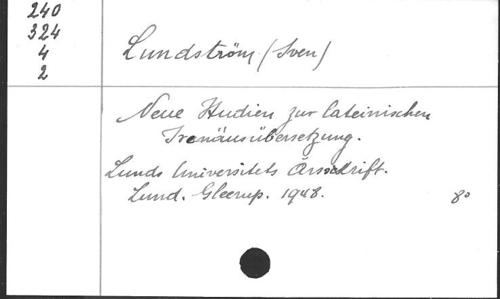 240
324
4
2
Lundström (Sven)
Neue Studien zur lateinischen
Irenäusübersetzung.
Lunds Universitets Årsskrift.
Lund. Gleerup. 1948. 8°